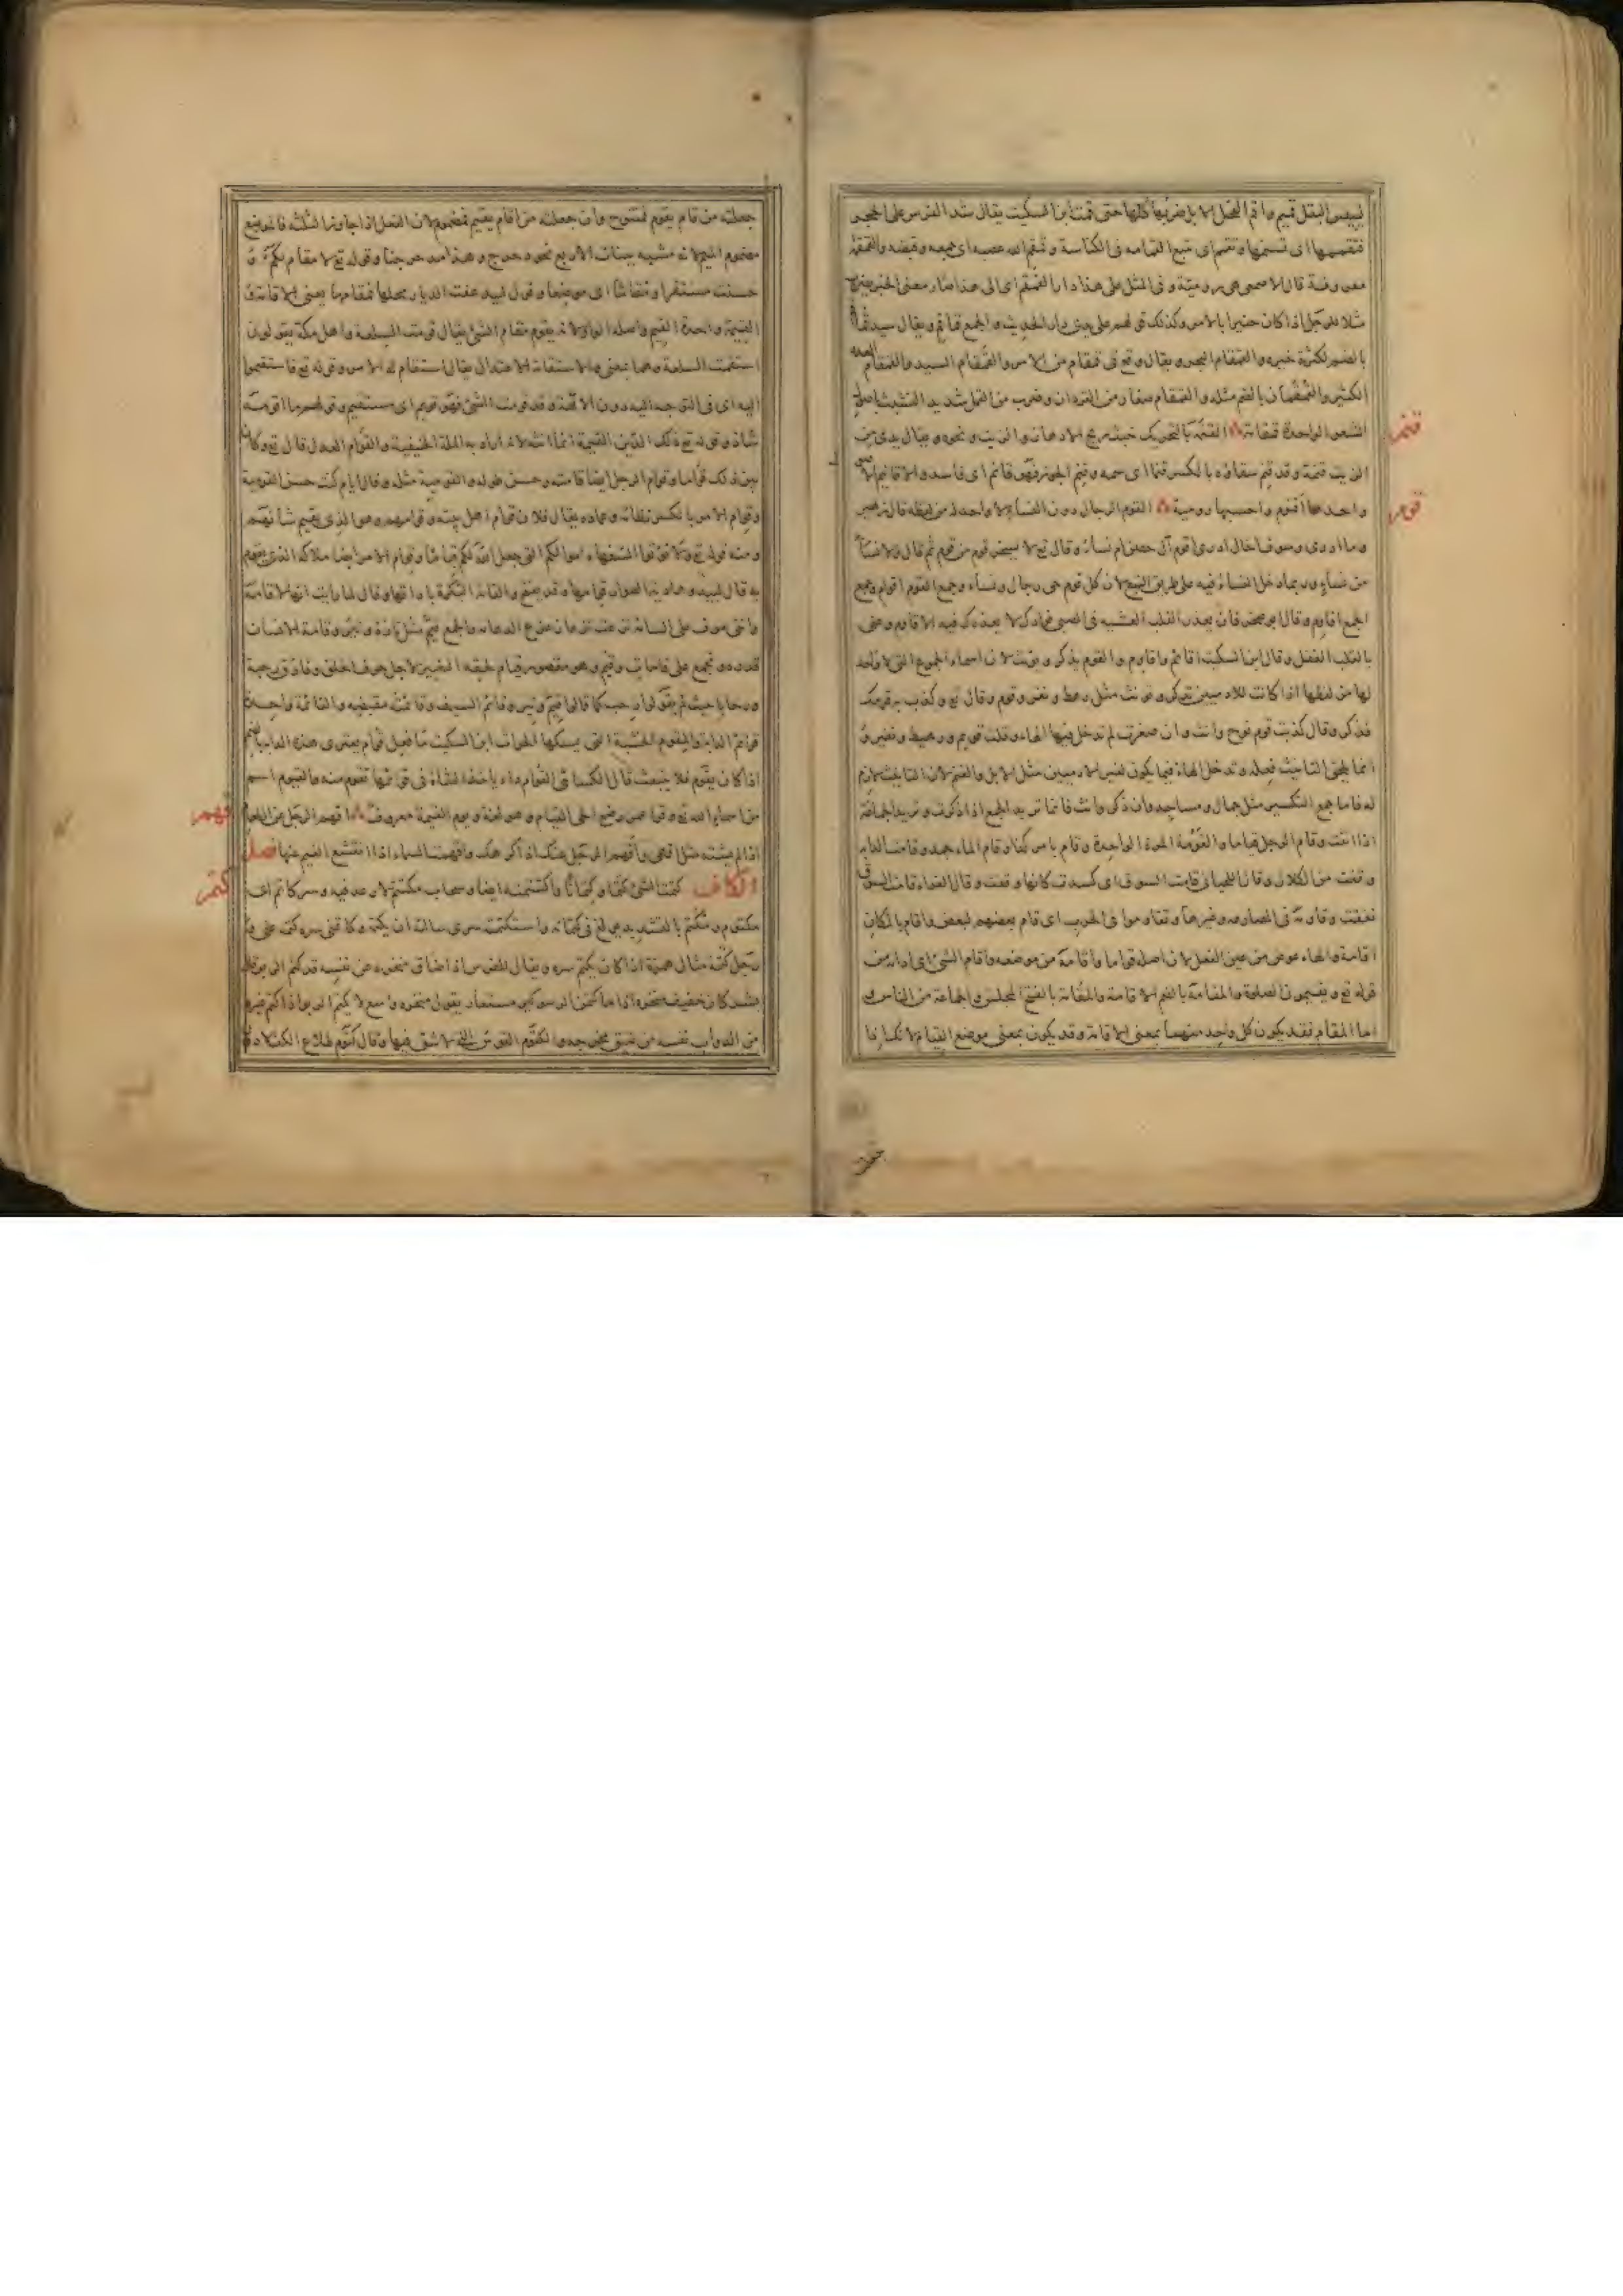 ليبيس البقل قميم واقم الفحل الابل ضربها كلها حتى قمت ابن السكيت يقال شد الفرس على الحجر
فتقممها اى تسنمها وتقمم اى تتبع القمامه فى الكناسة وقمقم الله عصبه اى جمعه وقبضه والقمقمة
معروفة قال الاصمعى هى رومية وفى المثل على هذا دار القمقم اى الى هذا صار معنى الخبر يضرب
مثلا للرجل اذا كان خبيرا بالامر وكذلك قولهم على يدى دار الحديث والجمع قماقم ويقال سيد قماقم
بالضم لكثرة خيره والقمقام البحر ويقال وقع فى قمقام من الامر والقمقام السيد والقمقام العدد
الكثير والقمقمان بالضم مثله والقمقام صغار القردان وضرب من القمل شديد التشبث باصول
الشعر الواحدة قمقامة القنمة بالتحريك خبث ريح الادهان والزيت ونحوه ويقال يدى من
قنم
الزيت قنمة وقد قنم سقاؤه بالكسر قنما اى تمه وقنم الجوز فهو قانم اى فاسد والاقانيم الاصول
واحدها اقنوم واحسبها رومية القوم الرجال دون النساء لا واحد له من لفظه قال زهير
قوم
وما ادرى وسوف اخال ادرى اقوم آل حصن ام نساء وقال تع لا يسخر قوم من قوم ثم قال ولا نساء
من نساء وربما دخل النساء فيه على طريق التبع لان كل قوم نبى رجال ونساء وجمع القوم اقوام وجمع
الجمع اقاوم وقال ابو صخر فان يعذر القلب العشية فى الصبى فؤادك لا يعذرك فيه الاقاوم وعنى
بالقلب العقل وقال ابن السكيت اقائم واقاوم والقوم يذكر ويونث لان اسماء الجموع التى لا واحد
لها من لفظها اذا كانت للادميين تذكر وتونث مثل رهط ونفر وقوم وقال تع وكذب به قومك
فذكر وقال كذبت قوم نوح وانث وان صغرت لم تدخل فيها الهاء وقلت قويم ورهيط ونفير و
انما يلحق التانيث فعله وتدخل الهاء فيما يكون لغير الادميين مثل الابل والغنم لان التانيث لازم
له فاما جمع التكسير مثل جمال ومساجد وان ذكر وانث فانما تريد الجمع اذا ذكرت وتريد الجماعة
اذا انثت وقام الرجل قياما والقومة المرة الواحدة وقام بامر كذا وقام الماء جمد وقامت الدابة
وقفت من الكلال وقال اللحيانى قامت السوق اى كسدت كانها وقفت وقال الفراء قامت السوق
نفقت وقاومه فى المصارعه وغيرها وتقاوموا فى الحرب اى قام بعضهم لبعض واقام بالمكان
اقامة والهاء عوض من عين الفعل لان اصله اقواما واقامه من موضعه واقام الشئ اى ادامه من
قوله تع ويقيمون الصلوة والمقامة بالضم الاقامة والمقامة بالفتح المجلس والجماعة من الناس و
اما المقام فقد يكون كل واحد منهما بمعنى الاقامة وقد يكون بمعنى موضع القيام لانك اذا
جعلته من قام يقوم فمفتوح وان جعلته من اقام يقيم فمضموم لان الفعل اذا جاوز الثلثه فالموضع
مضموم الميم لانه مشبه ببنات الاربع نحو دحرج وهذا مدحرجنا وقوله تع لا مقام لكم و
حسنت مستقرا ومقاما اى موضعا وقول لبيد عفت الديار محلها فمقامها يعنى الاقامة و
القيمة واحدة القيم واصله الواو لانه يقوم مقام الشئ يقال قومت السلعة واهل مكة يقولون
استقمت السلعة وهما بمعنى والاستقامة الاعتدال يقال استقام له الامر وقوله تع فاستقيموا
اليه اى فى التوجه اليه دون الالهة وقومت الشئ فهو قويم اى مستقيم وقولهم ما اقومه
شاذ وقوله تع وذلك الدين القيمة انما انثه لانه اراد به الملة الحنيفية والقوام العدل قال تع وكان
بين ذلك قواما وقوام الرجل ايضا قامته وحسن طوله والقومية مثله وقال ايام كنت حسن القومية
وقوام الامر بالكسر نظامه وعماده يقال فلان قوام اهل بيته وقيامهم وهو الذى يقيم شانهم
ومنه قوله تع ولا تؤتوا السفهاء اموالكم التى جعل الله لكم قياما وقوام الامر ايضا ملاكه الذى يقوم
به قال لبيد وهادية الصوار قوامها وقد يفتح والقامة البكرة باداتها وقال لما رايت انها لا قامة
واننى موف على السامه نزعت نزعا زعزع الدعامه والجمع قيم مثل تارة وتير وقامة الانسان
قده وتجمع على قامات وقيم وهو مقصور قيام لحقه التغيير لاجل حرف العلة وفارق رحبة
ورحابا حيث لم يقولوا رحب كما قالوا قيم وتير وقائم السيف وقائمته مقبضه والقائمة واحدة
قوائم الدابة والمقوم الخشبة التى يمسكها الحراث ابن السكيت ما فعل قوام يعترى هذه الدابة بالضم
اذا كان يقوم فلا ينبعث قال الكسائى القوام داء ياخذ الشاة فى قوائمها تقوم منه والقيوم اسم
من اسماء الله تع وقرا عمر رضى الحى القيام وهو لغة ويوم القيمة معروف اقهم الرجل عن الطعام
قهم
اذا لم يشتهه مثل اقهى واقهم الرجل عنك اذا كرهك واقهمت السماء اذا انقشع الغيم عنها فصل
الكاف كتمت الشئ كتما وكتمانا واكتتمته ايضا وسحاب مكتتم لا رعد فيه وسر كاتم اى
كتم
مكتوم ومكتم بالتشديد بولغ فى كتمانه واستكتمته سرى سالته ان يكتمه وكاتمنى سره كتمه عنى و
رجل كتمة مثال همزة اذا كان يكتم سره ويقال للفرس اذا ضاق منخره عن نفسه قد كتم الربو قال
بشر كان حفيف منخره اذا ما كتمن الربو كير مستعار يقول منخره واسع لا يكتم الربو اذا كتم غيره
من الدواب نفسه من ضيق مخرجه والكتوم القوس التى لا شق فيها وقال كتوم طلاع الكف لا دون